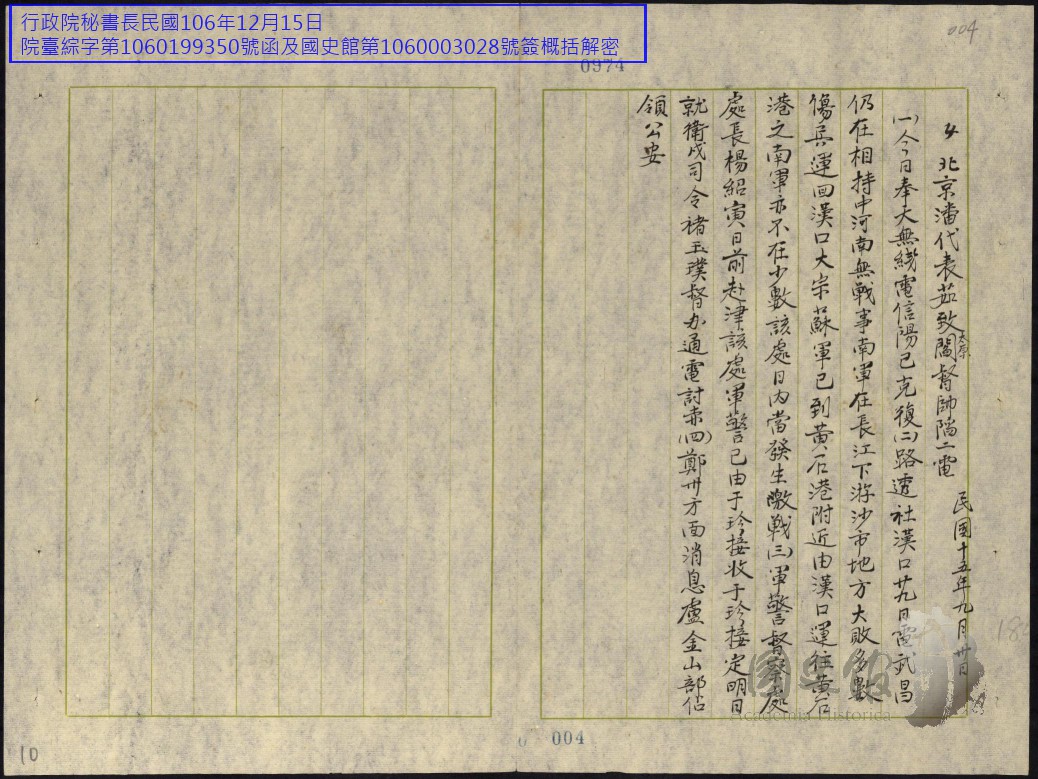 行政院秘書長民國106年12月15日
院臺綜字第1060199350號函及國史館第1060003028號簽概括解密
004
0974
北京潘代表茹致閻督帥陷二電 民國十五年九月卅日
太原
(一)今日奉天無綫電信陽已克復(二)路透社漢口廿九日電武昌
仍在相持中河南無戰事南軍在長江下游沙市地方大敗多數
傷兵運回漢口大宗蘇軍已到黃石港附近由漢口運往黃石
港之南軍亦不在少數該處日內當發生激戰(三)軍警督察處
處長楊紹寅日前赴津該處軍警已由于珍接收于珍接定明日
就衛戍司令褚玉璞督办通電討赤(四)鄭州方面消息盧金山部佔
領公安
國史館
Academia Historica
004
10